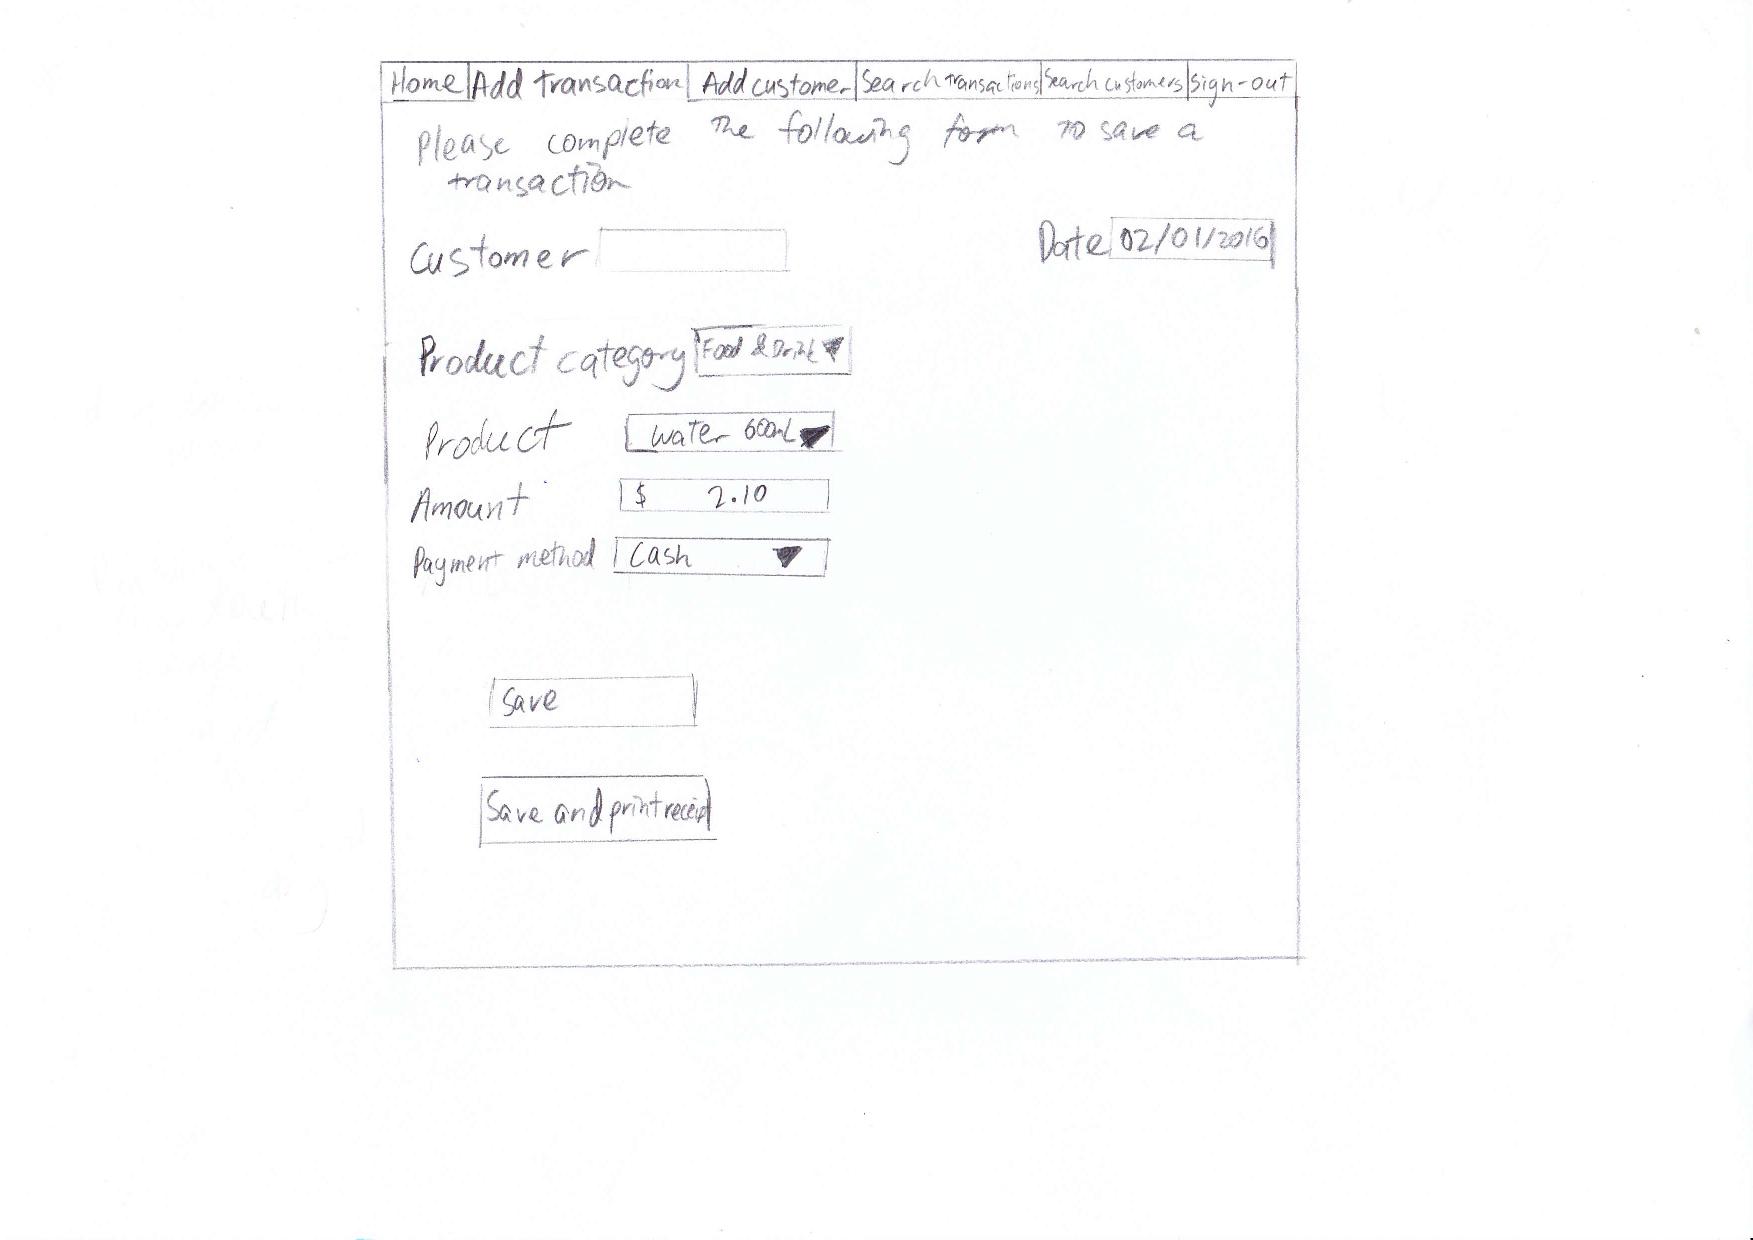 Home Add transaction Add customer Search transactions Search customers Sign-out
Please complete the following form to save a
transaction
Customer Date 02/01/2016
Product category Food & Drink
Product Water 600mL
Amount $ 2.10
Payment method Cash
Save
Save and print receipt